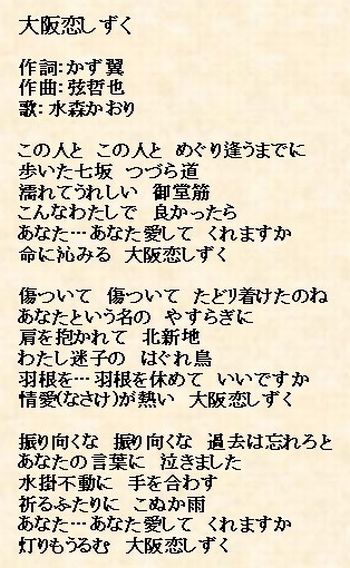 大阪恋しずく
作詞：かず翼
作曲：弦哲也
歌：水森かおり
この人と　この人と　めぐり逢うまでに
歩いた七坂　つづら道
濡れてうれしい　御堂筋
こんなわたしで　良かったら
あなた…あなた愛して　くれますか
命に沁みる　大阪恋しずく
傷ついて　傷ついて　たどり着けたのね
あなたという名の　やすらぎに
肩を抱かれて　北新地
わたし迷子の　はぐれ鳥
羽根を…羽根を休めて　いいですか
情愛(なさけ)が熱い　大阪恋しずく
振り向くな　振り向くな　過去は忘れろと
あなたの言葉に　泣きました
水掛不動に　手を合わす
祈るふたりに　こぬか雨
あなた…あなた愛して　くれますか
灯りもうるむ　大阪恋しずく